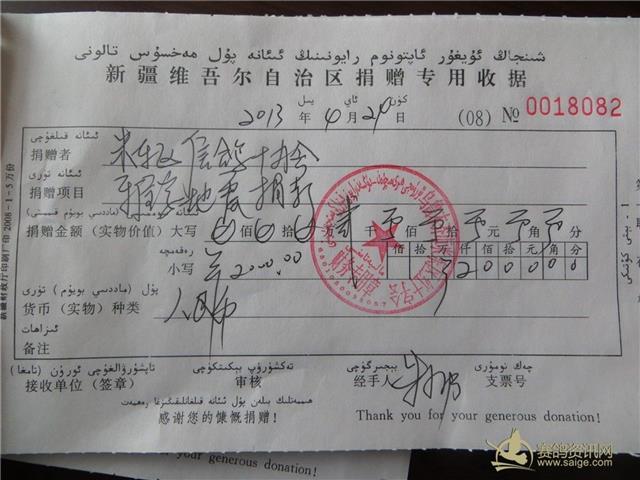 شىنجاڭ ئۇيغۇر ئاپتونوم رايونىنىڭ ئىئانە پۇل مەخسۇس تالونى
新疆维吾尔自治区捐赠专用收据
يىل ئاي كۈن
2013 年 4 月 24 日 (08) № 0018082
ئىئانە قىلغۇچى
捐赠者
ئىئانە تۈرى
捐赠项目 雅安地震捐款
捐赠金额（实物价值）大写 佰 拾 万 贰 千 佰 拾 元 角 分
رەقەمچە
小写 2000.00 佰 拾 万 千 佰 拾 元 角 分
2 0 0 0 0 0
پۇل (ماددىسى بويۇم) تۈرى
货币（实物）种类 人民币
ئىزاھات
备注
تاپشۇرۇۋالغۇچى ئورۇن (تامغا) تەكشۈرۈپ بېكىتكۈچى بېجىرگۈچى چەك نومۇرى
接收单位（签章） 审核 经手人 支票号
感谢您的慷慨捐赠! Thank you for your generous donation!
新疆财政厅印刷厂印 2008-1-5万份
your generous donation!
赛鸽资讯网
www.saige.com